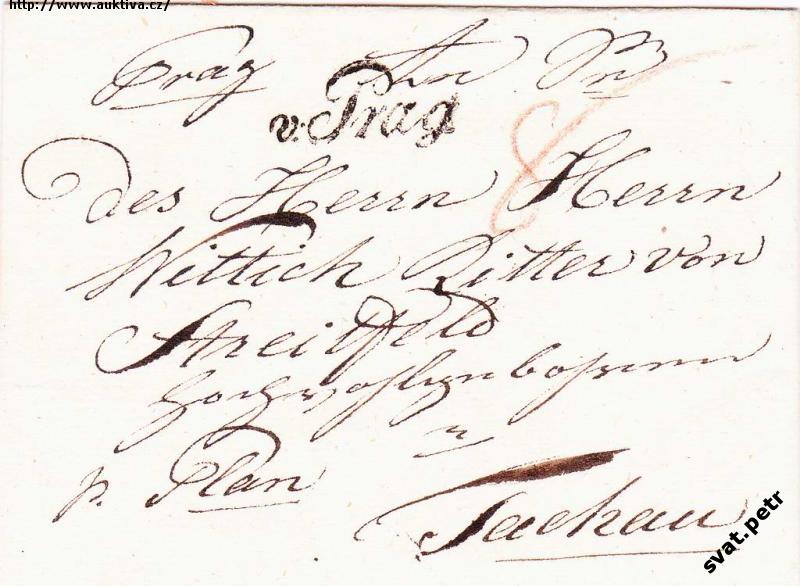 http://www.auktiva.cz/
Prag An
v: Prag
8
des Herrn Herrn
Wittich Ritter von
Streitfeld
p. Plan
Tachau
svat.petr